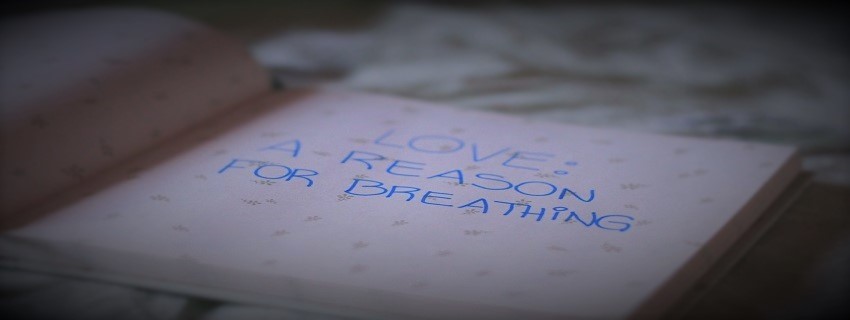 LOVE:
A REASON
FOR BREATHiNG